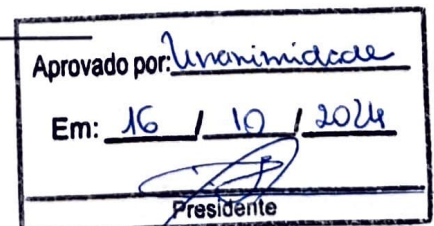 Aprovado por: Unanimidade
Em: 16 / 10 / 2024
Presidente